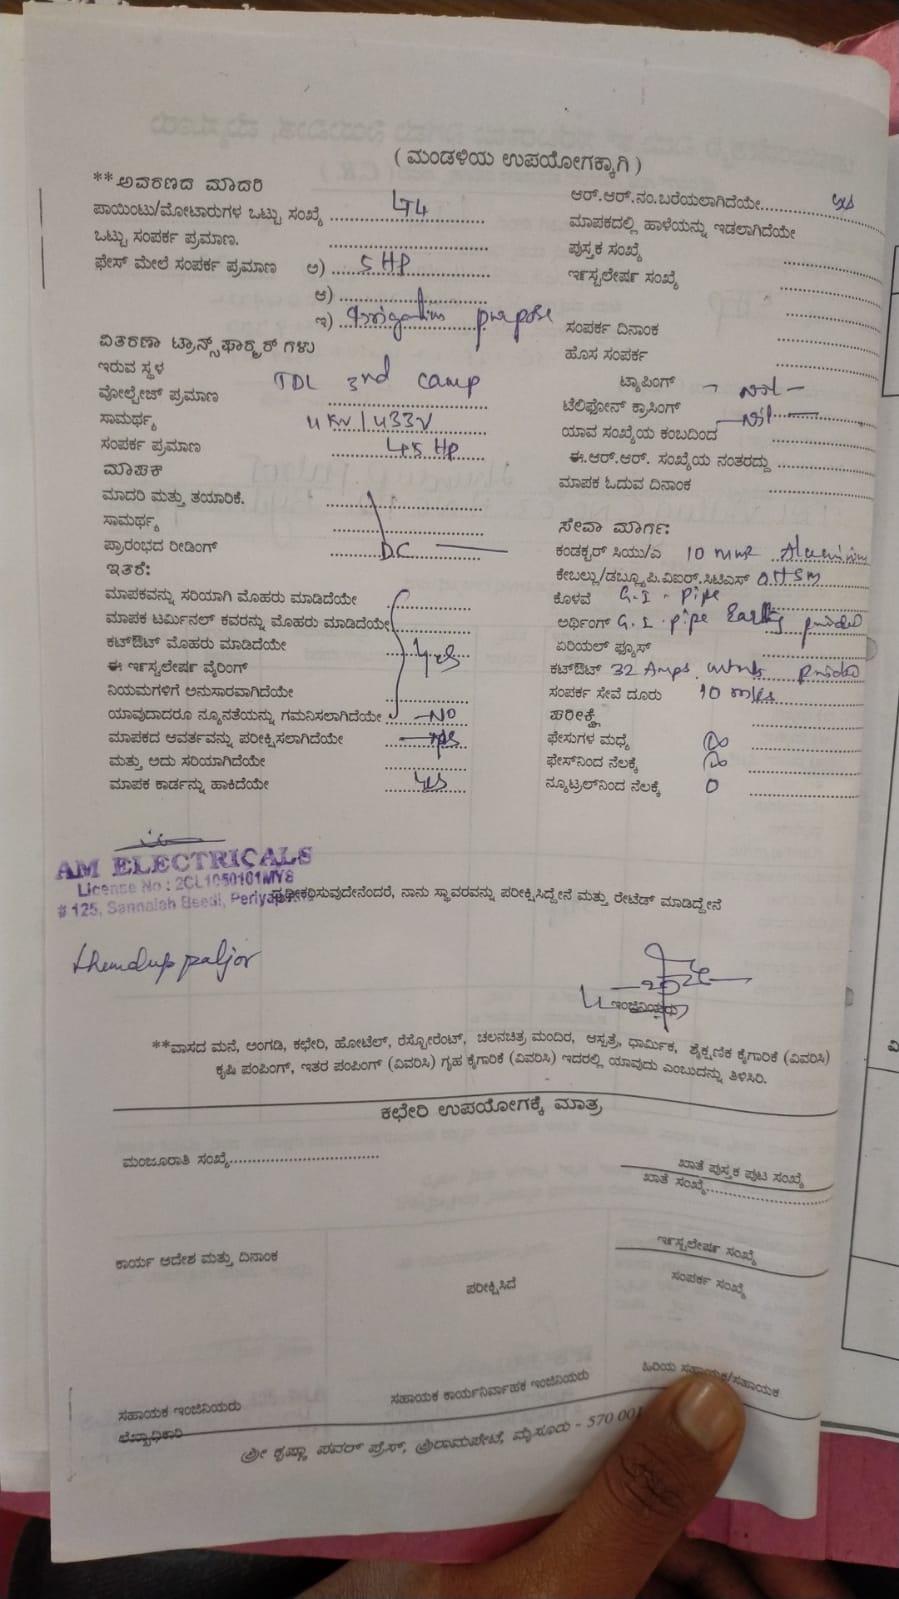 ( ಮಂಡಳಿಯ ಉಪಯೋಗಕ್ಕಾಗಿ )
**ಅವರಣದ ಮಾದರಿ
ಪಾಯಿಂಟು/ಮೋಟಾರುಗಳ ಒಟ್ಟು ಸಂಖ್ಯೆ
ಒಟ್ಟು ಸಂಪರ್ಕ ಪ್ರಮಾಣ.
ಫೇಸ್ ಮೇಲೆ ಸಂಪರ್ಕ ಪ್ರಮಾಣ ಅ) 5 HP
ಆ)
ಇ) Irrigation purpose
ವಿತರಣಾ ಟ್ರಾನ್ಸ್‌ಫಾರ್ಮರ್ ಗಳು
ಇರುವ ಸ್ಥಳ TDL 3rd camp
ವೋಲ್ಟೇಜ್ ಪ್ರಮಾಣ
ಸಾಮರ್ಥ್ಯ 11 KV / 433V
ಸಂಪರ್ಕ ಪ್ರಮಾಣ HP
ಮಾಪಕ
ಮಾದರಿ ಮತ್ತು ತಯಾರಿಕೆ.
ಸಾಮರ್ಥ್ಯ
ಪ್ರಾರಂಭದ ರೀಡಿಂಗ್ DC
ಇತರೆ:
ಮಾಪಕವನ್ನು ಸರಿಯಾಗಿ ಮೊಹರು ಮಾಡಿದೆಯೇ
ಮಾಪಕ ಟರ್ಮಿನಲ್ ಕವರನ್ನು ಮೊಹರು ಮಾಡಿದೆಯೇ
ಕಟ್‌ಔಟ್ ಮೊಹರು ಮಾಡಿದೆಯೇ yes
ಈ ಇನ್ಸ್ಟಲೇಷನ್ ವೈರಿಂಗ್
ನಿಯಮಗಳಿಗೆ ಅನುಸಾರವಾಗಿದೆಯೇ
ಯಾವುದಾದರೂ ನ್ಯೂನತೆಯನ್ನು ಗಮನಿಸಲಾಗಿದೆಯೇ NO
ಮಾಪಕದ ಆವರ್ತವನ್ನು ಪರೀಕ್ಷಿಸಲಾಗಿದೆಯೇ yes
ಮತ್ತು ಅದು ಸರಿಯಾಗಿದೆಯೇ
ಮಾಪಕ ಕಾರ್ಡನ್ನು ಹಾಕಿದೆಯೇ yes
ಆರ್.ಆರ್.ನಂ.ಬರೆಯಲಾಗಿದೆಯೇ yes
ಮಾಪಕದಲ್ಲಿ ಹಾಳೆಯನ್ನು ಇಡಲಾಗಿದೆಯೇ
ಪುಸ್ತಕ ಸಂಖ್ಯೆ
ಇನ್ಸ್ಟಲೇಷನ್ ಸಂಖ್ಯೆ
ಸಂಪರ್ಕ ದಿನಾಂಕ
ಹೊಸ ಸಂಪರ್ಕ
ಟ್ಯಾಪಿಂಗ್ - Nil -
ಟೆಲಿಫೋನ್ ಕ್ರಾಸಿಂಗ್ - Nil -
ಯಾವ ಸಂಖ್ಯೆಯ ಕಂಬದಿಂದ
ಈ.ಆರ್.ಆರ್. ಸಂಖ್ಯೆಯ ನಂತರದ್ದು
ಮಾಪಕ ಓದುವ ದಿನಾಂಕ
ಸೇವಾ ಮಾರ್ಗ:
ಕಂಡಕ್ಟರ್ ಸಿಯು/ಎ 10 mm2 Aluminium
ಕೇಬಲ್ಲು/ಡಬ್ಲ್ಯೂಪಿ.ವಿಐರ್.ಸಿಟಿಎಸ್ OHSM
ಕೊಳವೆ G.I - pipe
ಅರ್ಥಿಂಗ್ G.I. pipe Earthing provided
ಏರಿಯಲ್ ಫ್ಯೂಸ್
ಕಟ್‌ಔಟ್ 32 Amps. cutouts provided
ಸಂಪರ್ಕ ಸೇವೆ ದೂರು 10 mtrs
ಪರೀಕ್ಷೆ
ಫೇಸುಗಳ ಮಧ್ಯೆ ∞
ಫೇಸ್‌ನಿಂದ ನೆಲಕ್ಕೆ ∞
ನ್ಯೂಟ್ರಲ್‌ನಿಂದ ನೆಲಕ್ಕೆ 0
AM ELECTRICALS
License No : 2CL1050101MYS
# 125, Sannaiah Beedi,
ನಾನು ಸ್ಥಾವರವನ್ನು ಪರೀಕ್ಷಿಸಿದ್ದೇನೆ ಮತ್ತು ರೇಟೆಡ್ ಮಾಡಿದ್ದೇನೆ
thendup paljor
ಇಂಜಿನಿಯರು
**ವಾಸದ ಮನೆ, ಅಂಗಡಿ, ಕಛೇರಿ, ಹೋಟೆಲ್, ರೆಸ್ಟೋರೆಂಟ್, ಚಲನಚಿತ್ರ ಮಂದಿರ, ಆಸ್ಪತ್ರೆ, ಧಾರ್ಮಿಕ, ಶೈಕ್ಷಣಿಕ ಕೈಗಾರಿಕೆ (ವಿವರಿಸಿ)
ಕೃಷಿ ಪಂಪಿಂಗ್, ಇತರ ಪಂಪಿಂಗ್ (ವಿವರಿಸಿ) ಗೃಹ ಕೈಗಾರಿಕೆ (ವಿವರಿಸಿ) ಇದರಲ್ಲಿ ಯಾವುದು ಎಂಬುದನ್ನು ತಿಳಿಸಿರಿ.
ಕಛೇರಿ ಉಪಯೋಗಕ್ಕೆ ಮಾತ್ರ
ಮಂಜೂರಾತಿ ಸಂಖ್ಯೆ
ಖಾತೆ ಪುಸ್ತಕ ಪುಟ ಸಂಖ್ಯೆ
ಖಾತೆ ಸಂಖ್ಯೆ
ಇನ್ಸ್ಟಲೇಷನ್ ಸಂಖ್ಯೆ
ಕಾರ್ಯ ಆದೇಶ ಮತ್ತು ದಿನಾಂಕ
ಪರೀಕ್ಷಿಸಿದೆ
ಸಂಪರ್ಕ ಸಂಖ್ಯೆ
ಸಹಾಯಕ ಇಂಜಿನಿಯರು
ಸಹಾಯಕ ಕಾರ್ಯನಿರ್ವಾಹಕ ಇಂಜಿನಿಯರು
ಹಿರಿಯ ಸಹಾಯಕ/ಸಹಾಯಕ
ಲೆಖ್ಖಾಧಿಕಾರಿ
ಶ್ರೀ ಕೃಷ್ಣಾ ಪವರ್ ಪ್ರೆಸ್, ಶ್ರೀರಾಮಪೇಟೆ, ಮೈಸೂರು - 570 001